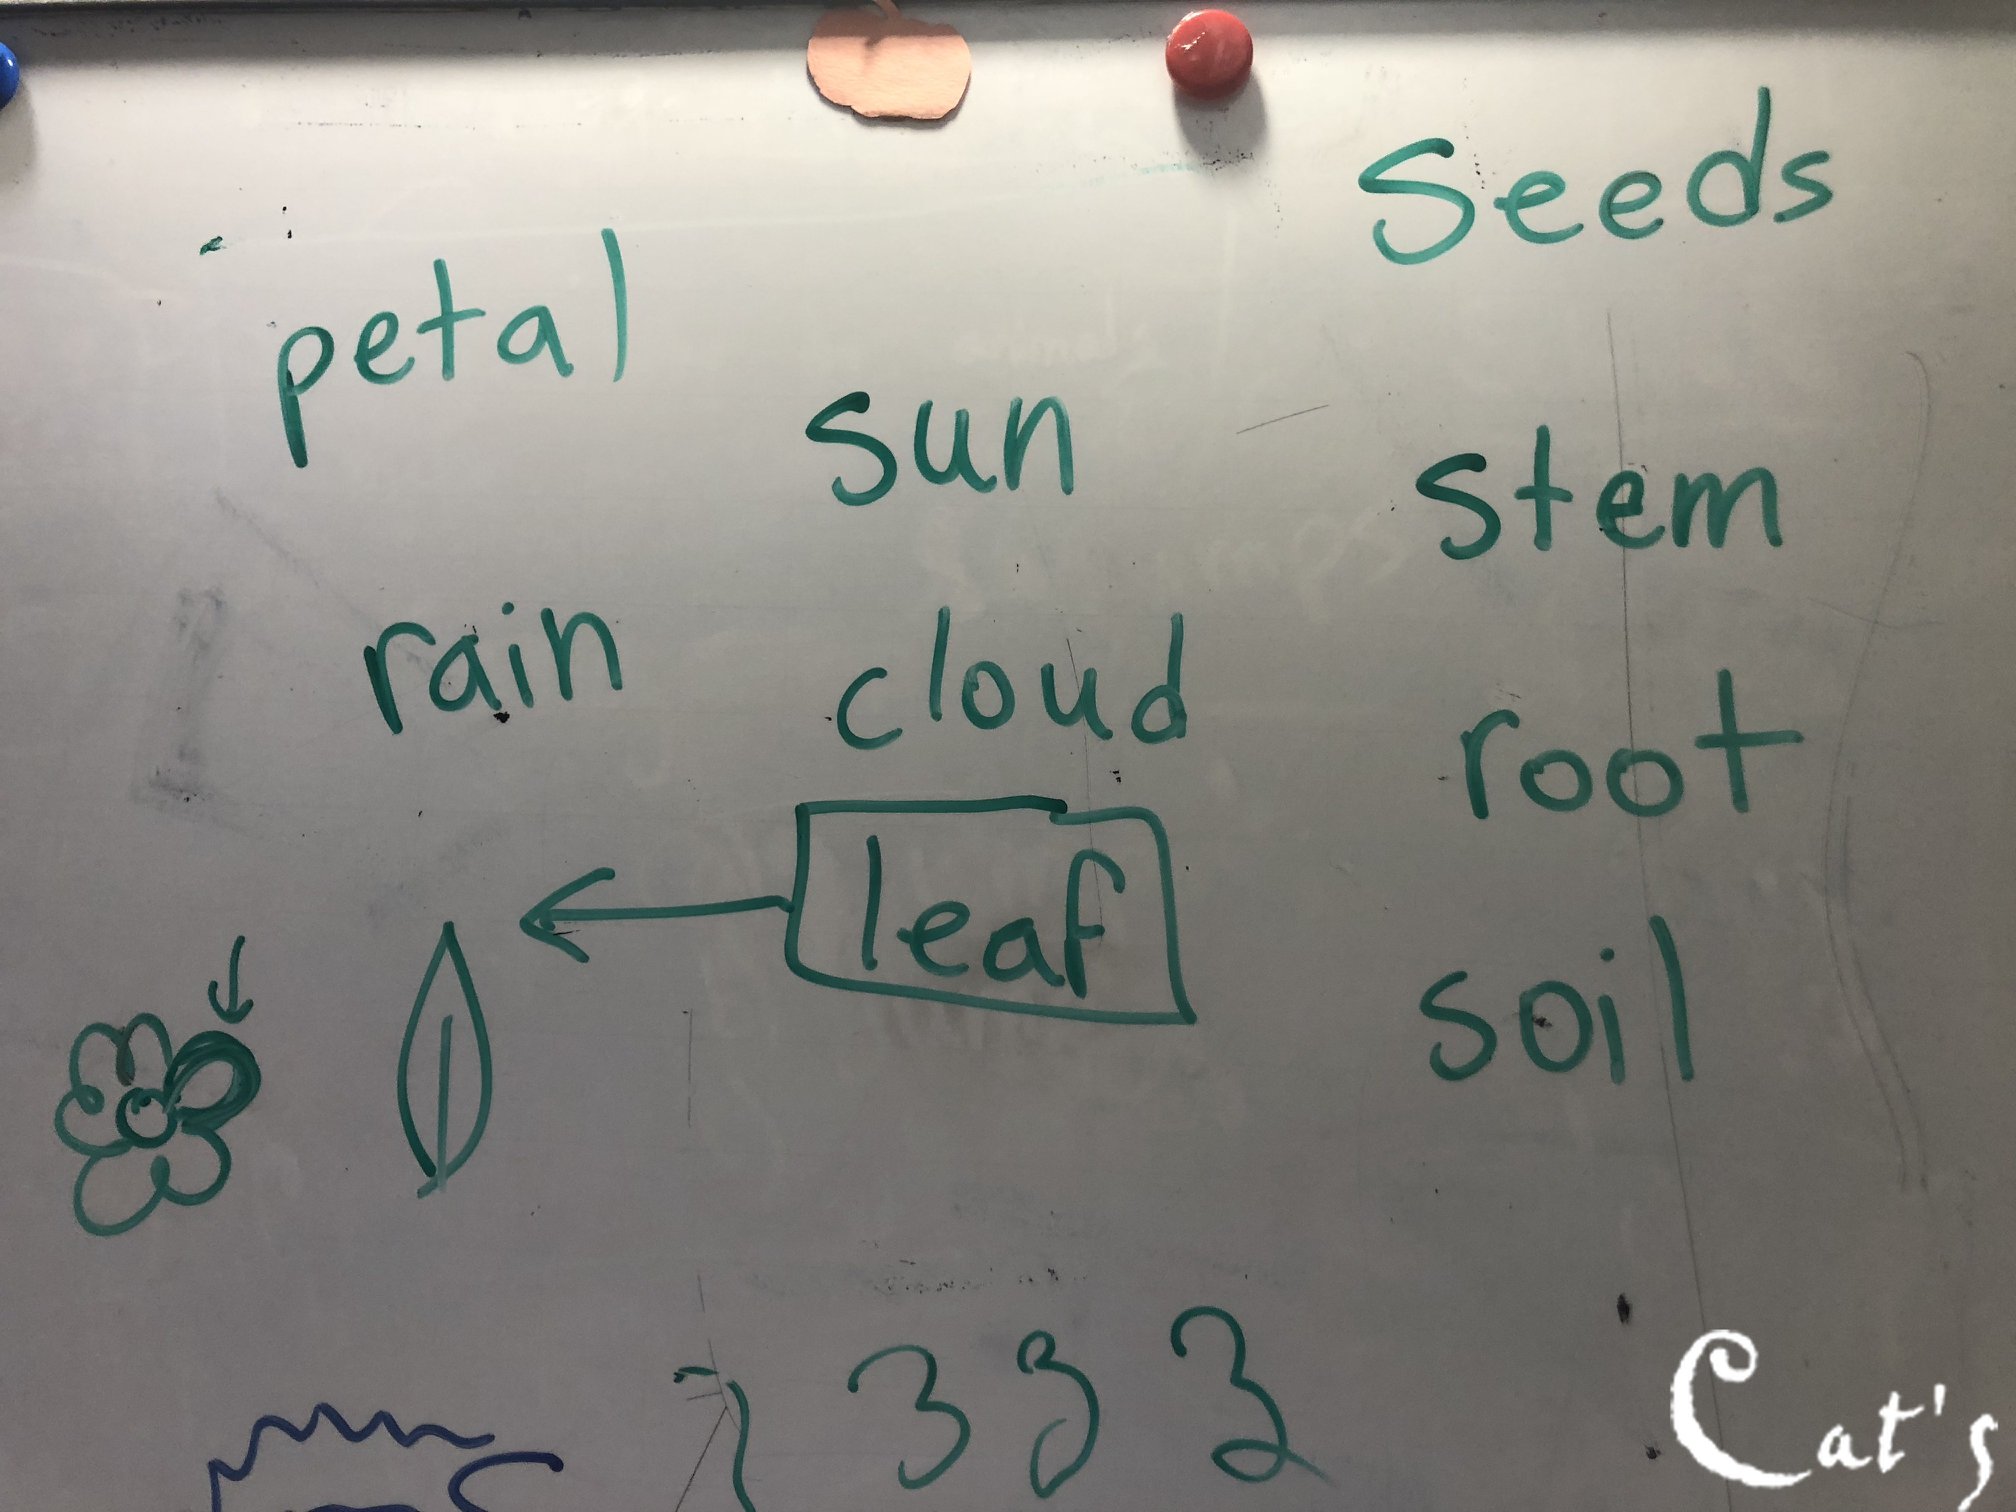 Seeds
petal
sun
stem
rain
cloud
root
leaf
soil
Cat's